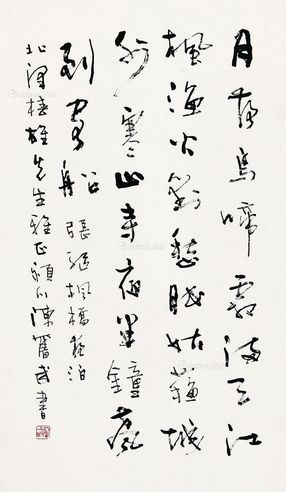 月落烏啼霜滿天江
楓漁火對愁眠姑蘇城
外寒山寺夜半鐘聲
到客船 張繼楓橋夜泊
北澤雄先生雅正 潁川陳奮武書